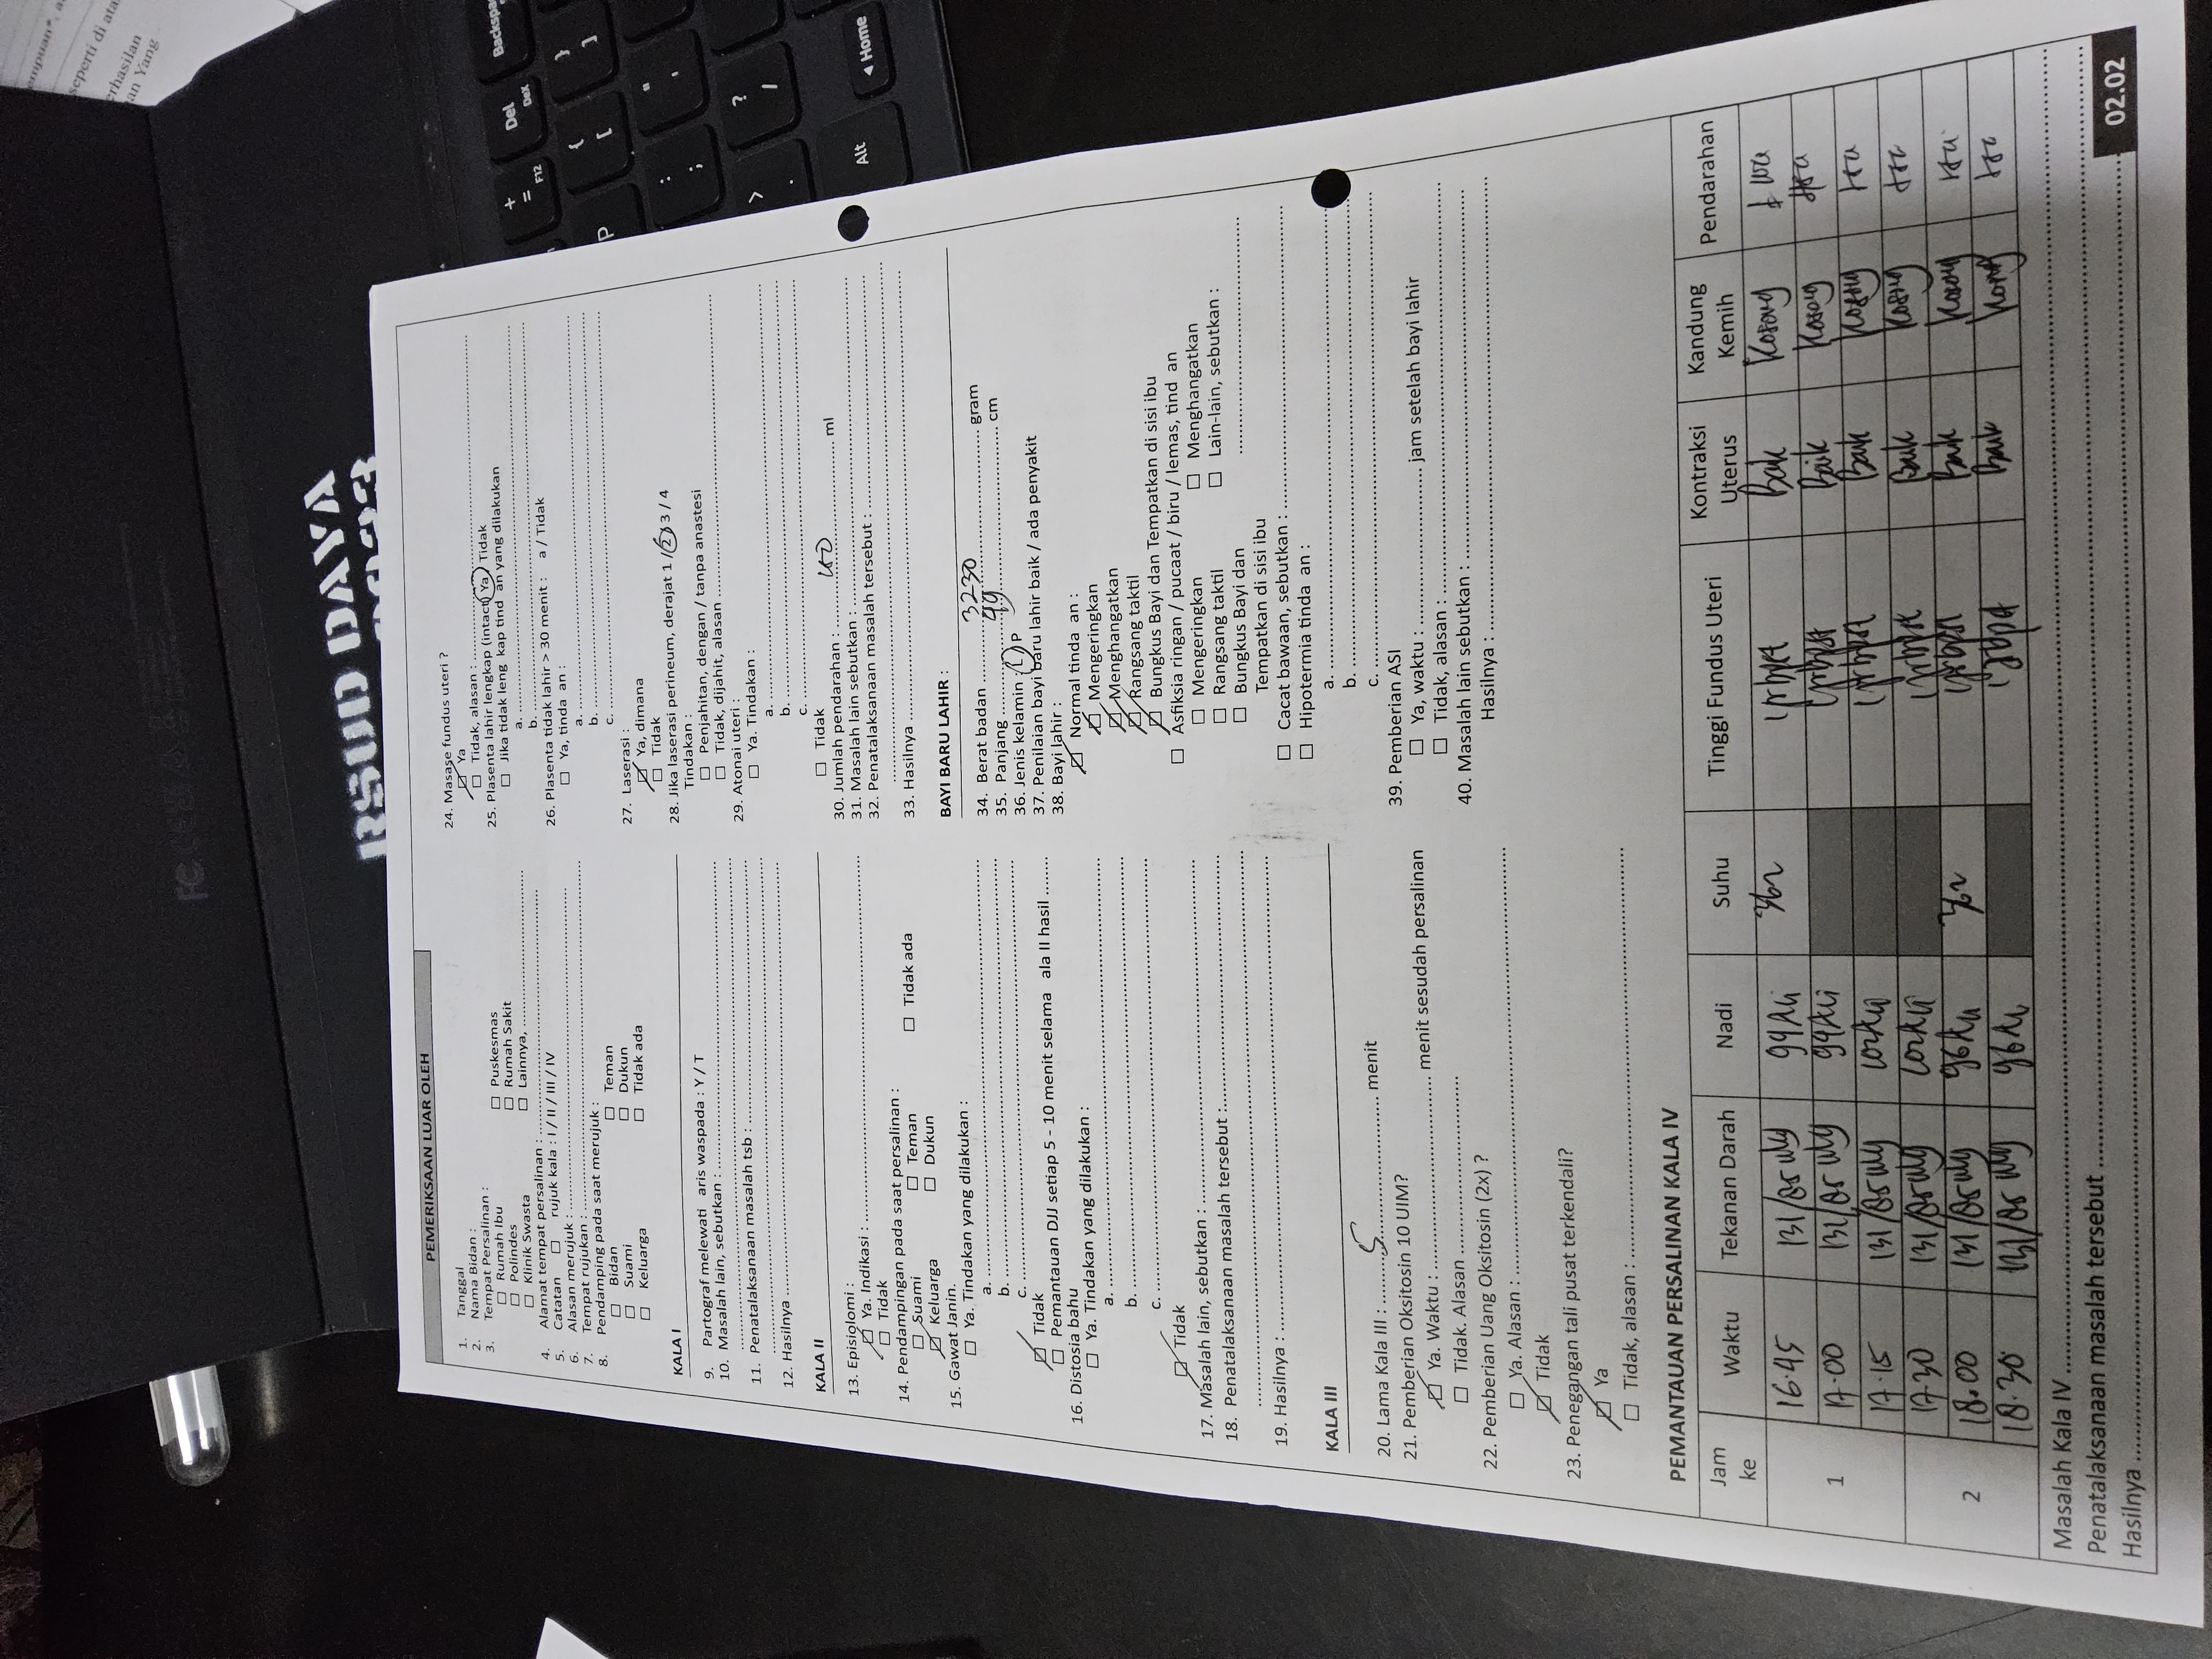 empuan*, a
seperti di ata
erhasilan
an Yang
RSUD DAYA
PEMERIKSAAN LUAR OLEH
1. Tanggal
2. Nama Bidan :
3. Tempat Persalinan :
Rumah Ibu Puskesmas
Polindes Rumah Sakit
Klinik Swasta Lainnya, ....................
4. Alamat tempat persalinan : ....................
5. Catatan rujuk kala : I / II / III / IV
6. Alasan merujuk : ....................
7. Tempat rujukan : ....................
8. Pendamping pada saat merujuk :
Bidan Teman
Suami Dukun
Keluarga Tidak ada
KALA I
9. Partograf melewati aris waspada : Y / T
10. Masalah lain, sebutkan : ....................
11. Penatalaksanaan masalah tsb : ....................
12. Hasilnya ....................
KALA II
13. Episiolomi :
Ya. Indikasi : ....................
Tidak
14. Pendampingan pada saat persalinan :
Suami Teman Tidak ada
Keluarga Dukun
15. Gawat Janin.
Ya. Tindakan yang dilakukan :
a. ....................
b. ....................
c. ....................
Tidak
Pemantauan DJJ setiap 5 - 10 menit selama ala II hasil ........
16. Distosia bahu
Ya. Tindakan yang dilakukan :
a. ....................
b. ....................
c. ....................
Tidak
17. Masalah lain, sebutkan : ....................
18. Penatalaksanaan masalah tersebut :....................
19. Hasilnya : ....................
KALA III
20. Lama Kala III : 5 menit
21. Pemberian Oksitosin 10 UIM?
Ya. Waktu : .................... menit sesudah persalinan
Tidak. Alasan ....................
22. Pemberian Uang Oksitosin (2x) ?
Ya. Alasan : ....................
Tidak
23. Penegangan tali pusat terkendali?
Ya
Tidak, alasan : ....................
24. Masase fundus uteri ?
Ya
Tidak, alasan : ....................
25. Plasenta lahir lengkap (intact) Ya / Tidak
Jika tidak leng kap tind an yang dilakukan
a. ....................
b. ....................
26. Plasenta tidak lahir > 30 menit : a / Tidak
Ya, tinda an :
a. ....................
b. ....................
c. ....................
27. Laserasi :
Ya, dimana
Tidak
28. Jika laserasi perineum, derajat 1 / 2 / 3 / 4
Tindakan :
Penjahitan, dengan / tanpa anastesi
Tidak, dijahit, alasan ....................
29. Atonai uteri :
Ya. Tindakan :
a. ....................
b. ....................
c. ....................
Tidak
30. Jumlah pendarahan : .................... ml
31. Masalah lain sebutkan : ....................
32. Penatalaksanaan masalah tersebut : ....................
33. Hasilnya ....................
BAYI BARU LAHIR :
34. Berat badan 3230 gram
35. Panjang 49 cm
36. Jenis kelamin : L / P
37. Penilaian bayi baru lahir baik / ada penyakit
38. Bayi lahir :
Normal tinda an :
Mengeringkan
Menghangatkan
Rangsang taktil
Bungkus Bayi dan Tempatkan di sisi ibu
Asfiksia ringan / pucaat / biru / lemas, tind an
Mengeringkan Menghangatkan
Rangsang taktil Lain-lain, sebutkan :
Bungkus Bayi dan ....................
Tempatkan di sisi ibu
Cacat bawaan, sebutkan : ....................
Hipotermia tinda an :
a. ....................
b. ....................
c. ....................
39. Pemberian ASI
Ya, waktu : .................... jam setelah bayi lahir
Tidak, alasan : ....................
40. Masalah lain sebutkan : ....................
Hasilnya : ....................
PEMANTAUAN PERSALINAN KALA IV
Jam ke Waktu Tekanan Darah Nadi Suhu Tinggi Fundus Uteri Kontraksi Uterus Kandung Kemih Pendarahan
1 16.45 131/85 Baik Kosong
17.00 131/85 Baik Kosong
17.15 131/85 Baik Kosong
17.30 131/85 Baik Kosong
2 18.00 131/85 Baik Kosong
18.30 131/85 Baik Kosong
Masalah Kala IV ....................
Penatalaksanaan masalah tersebut ....................
Hasilnya ....................
02.02
+
=
F12
Del
DeX
Backspa
P
{
[
}
]
:
;
"
'
>
.
?
/
Alt
◄ Home